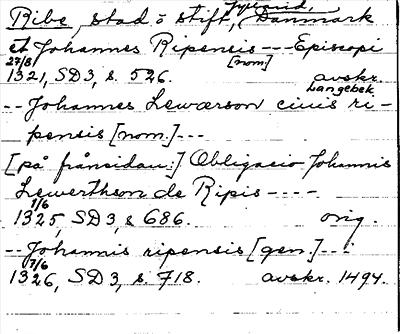 Jylland,
Ribe, stad o stift, Danmark
et Johannes Ripensis --- Episcopi
27/8 [nom]
1321, SD 3, s. 526. avskr.
Langebek
-- Johannes Lewærson ciuis ri-
pensis [nom.] ---
[på frånsidan:] Obligacio Johannis
Lewerthson de Ripis ----
1/6
1325, SD 3, s 686. orig.
-- Johannis ripensis [gen.] ---
7/6
1326, SD 3, s. 718. avskr. 1494.